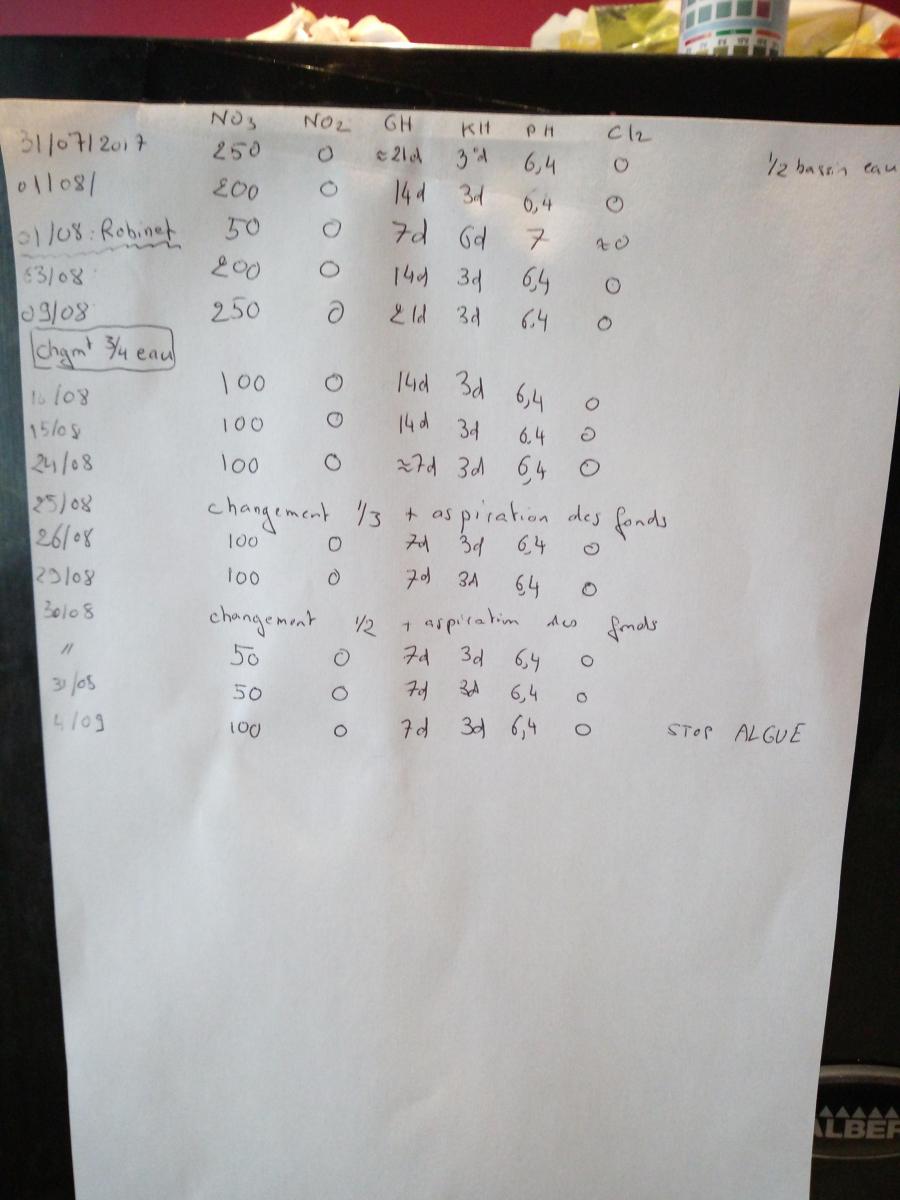 NO3 NO2 GH KH PH Cl2
31/07/2017 250 0 ≈21d 3d 6,4 0 1/2 bassin eau
01/08/ 200 0 14d 3d 6,4 0
01/08: Robinet 50 0 7d 6d 7 ≈0
03/08 200 0 14d 3d 6,4 0
09/08 250 0 21d 3d 6.4 0
Chgmt 3/4 eau
10/08 100 0 14d 3d 6,4 0
15/08 100 0 14d 3d 6.4 0
24/08 100 0 ≈7d 3d 6,4 0
25/08 changement 1/3 + aspiration des fonds
26/08 100 0 7d 3d 6,4 0
29/08 100 0 7d 3d 6,4 0
30/08 changement 1/2 + aspiration des fonds
" 50 0 7d 3d 6,4 0
31/08 50 0 7d 3d 6,4 0
4/09 100 0 7d 3d 6,4 0 STOP ALGUE